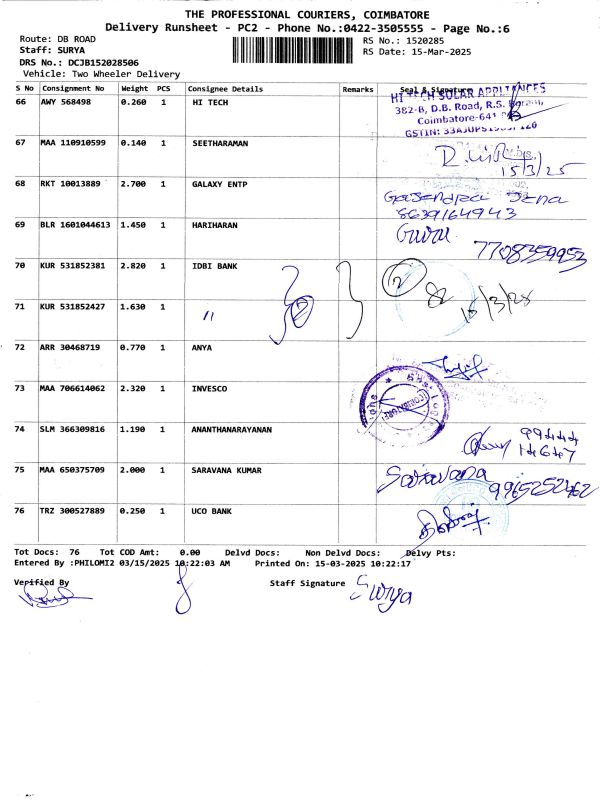 THE PROFESSIONAL COURIERS, COIMBATORE
Delivery Runsheet - PC2 - Phone No.:0422-3505555 - Page No.:6
Route: DB ROAD
RS No.: 1520285
Staff: SURYA
RS Date: 15-Mar-2025
DRS No.: DCJB152028506
Vehicle: Two Wheeler Delivery
S No Consignment No Weight PCS Consignee Details Remarks Seal & Signature
66 AWY 568498 0.260 1 HI TECH
HI TECH SOLAR APPLIANCES
382-B, D.B. Road, R.S.
Coimbatore-641
GSTIN:
67 MAA 110910599 0.140 1 SEETHARAMAN
15/3/25
68 RKT 10013889 2.700 1 GALAXY ENTP
8639164943
69 BLR 1601044613 1.450 1 HARIHARAN
Guru
7708359953
70 KUR 531852381 2.820 1 IDBI BANK
2
15/3/25
71 KUR 531852427 1.630 1 〃 2
72 ARR 30468719 0.770 1 ANYA
73 MAA 706614062 2.320 1 INVESCO
74 SLM 366309816 1.190 1 ANANTHANARAYANAN
99444
14647
75 MAA 650375709 2.000 1 SARAVANA KUMAR
Saravana
9965252462
76 TRZ 300527889 0.250 1 UCO BANK
Tot Docs: 76 Tot COD Amt: 0.00 Delvd Docs: Non Delvd Docs: Delvy Pts:
Entered By :PHILOMI2 03/15/2025 10:22:03 AM Printed On: 15-03-2025 10:22:17
Verified By
Staff Signature Surya